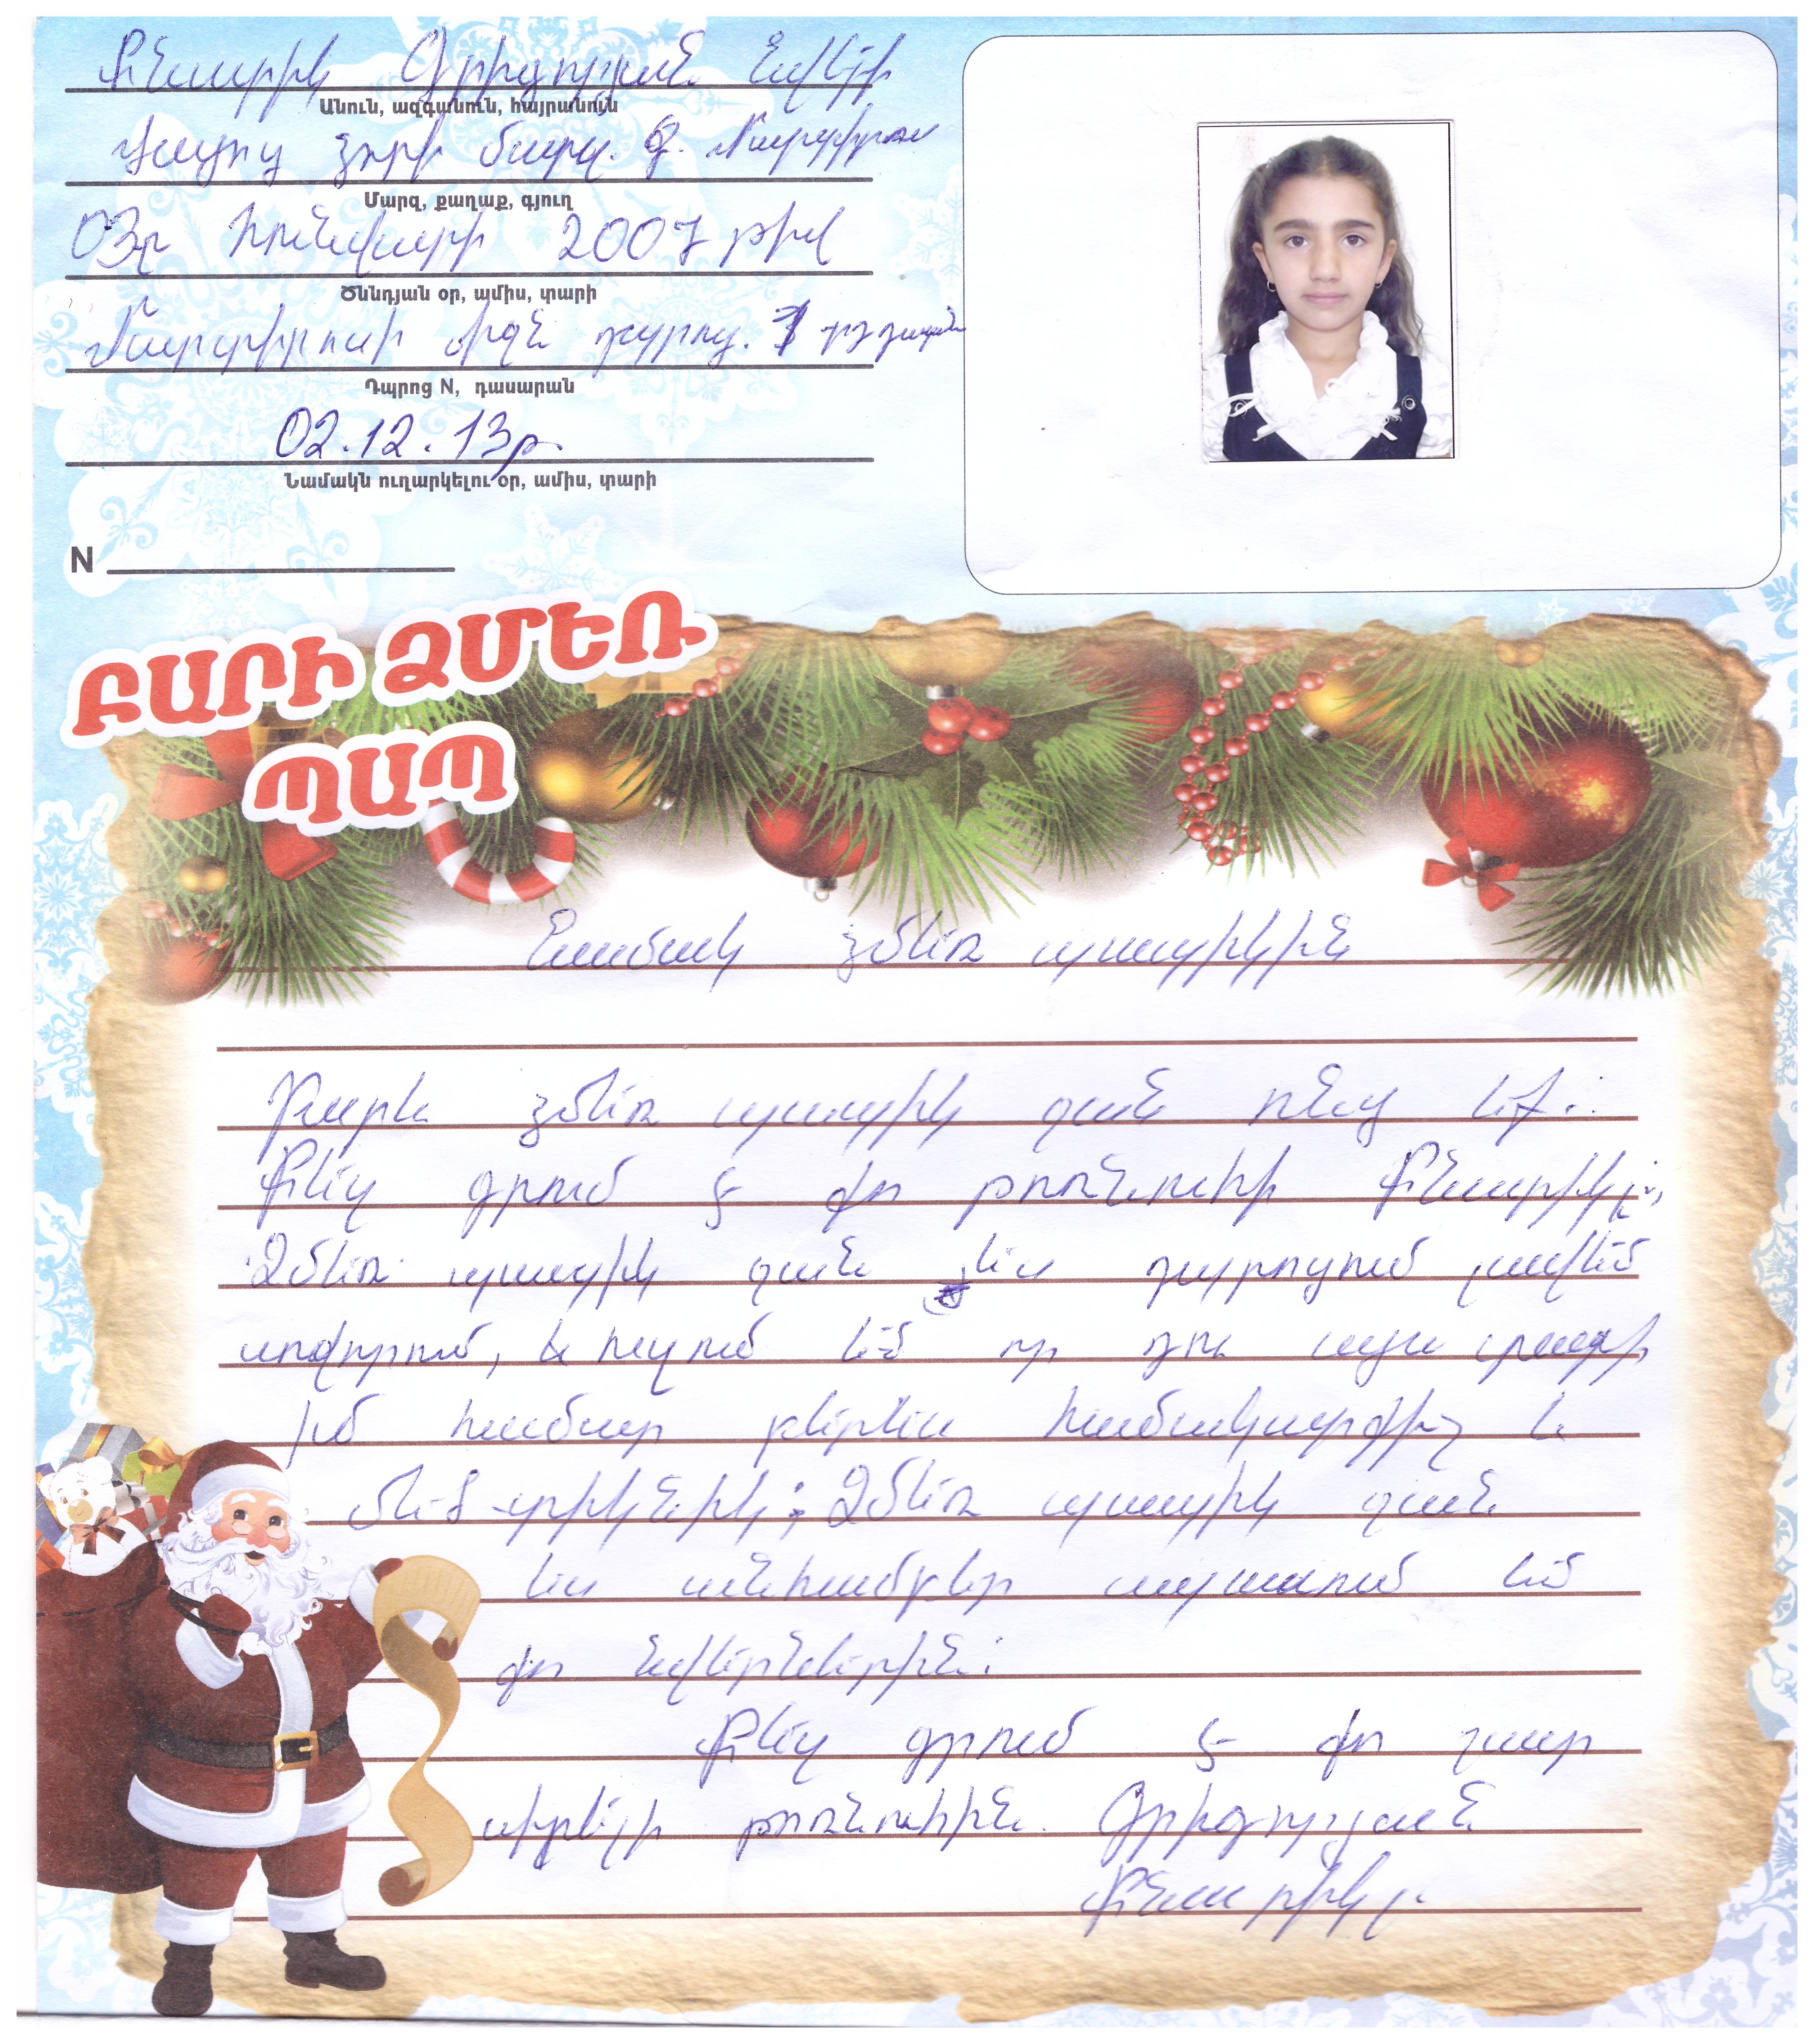 Քնարիկ Գրիգորյան Նվերի
Անուն, ազգանուն, հայրանուն
Վայոց ձորի մարզ. գ. Մարտիրոս
Մարզ, քաղաք, գյուղ
03ը հունվարի 2007 թիվ
Ծննդյան օր, ամիս, տարի
Մարտիրոսի միջն դպրոց. 1
Դպրոց N, դասարան
02.12.13թ.
Նամակն ուղարկելու օր, ամիս, տարի
N
ԲԱՐԻ ՁՄԵՌ
ՊԱՊ
Նամակ ձմեռ պապիկին
Բարև ձմեռ պապիկ ջան ոնց եք:
Քեզ գրում է քո թոռնուհի Քնարիկը,
Ձմեռ պապիկ ջան ես դպրոցում լավ եմ
սովորում, և ուզում եմ որ դու այս տարի
իմ համար բերես համակարգիչ և
մեծ տիկնիկ: Ձմեռ պապիկ ջան
ես անհամբեր սպասում եմ
քո նվերներին:
Քեզ գրում է քո շատ
սիրելի թոռնուհին. Գրիգորյան
Քնարիկը.